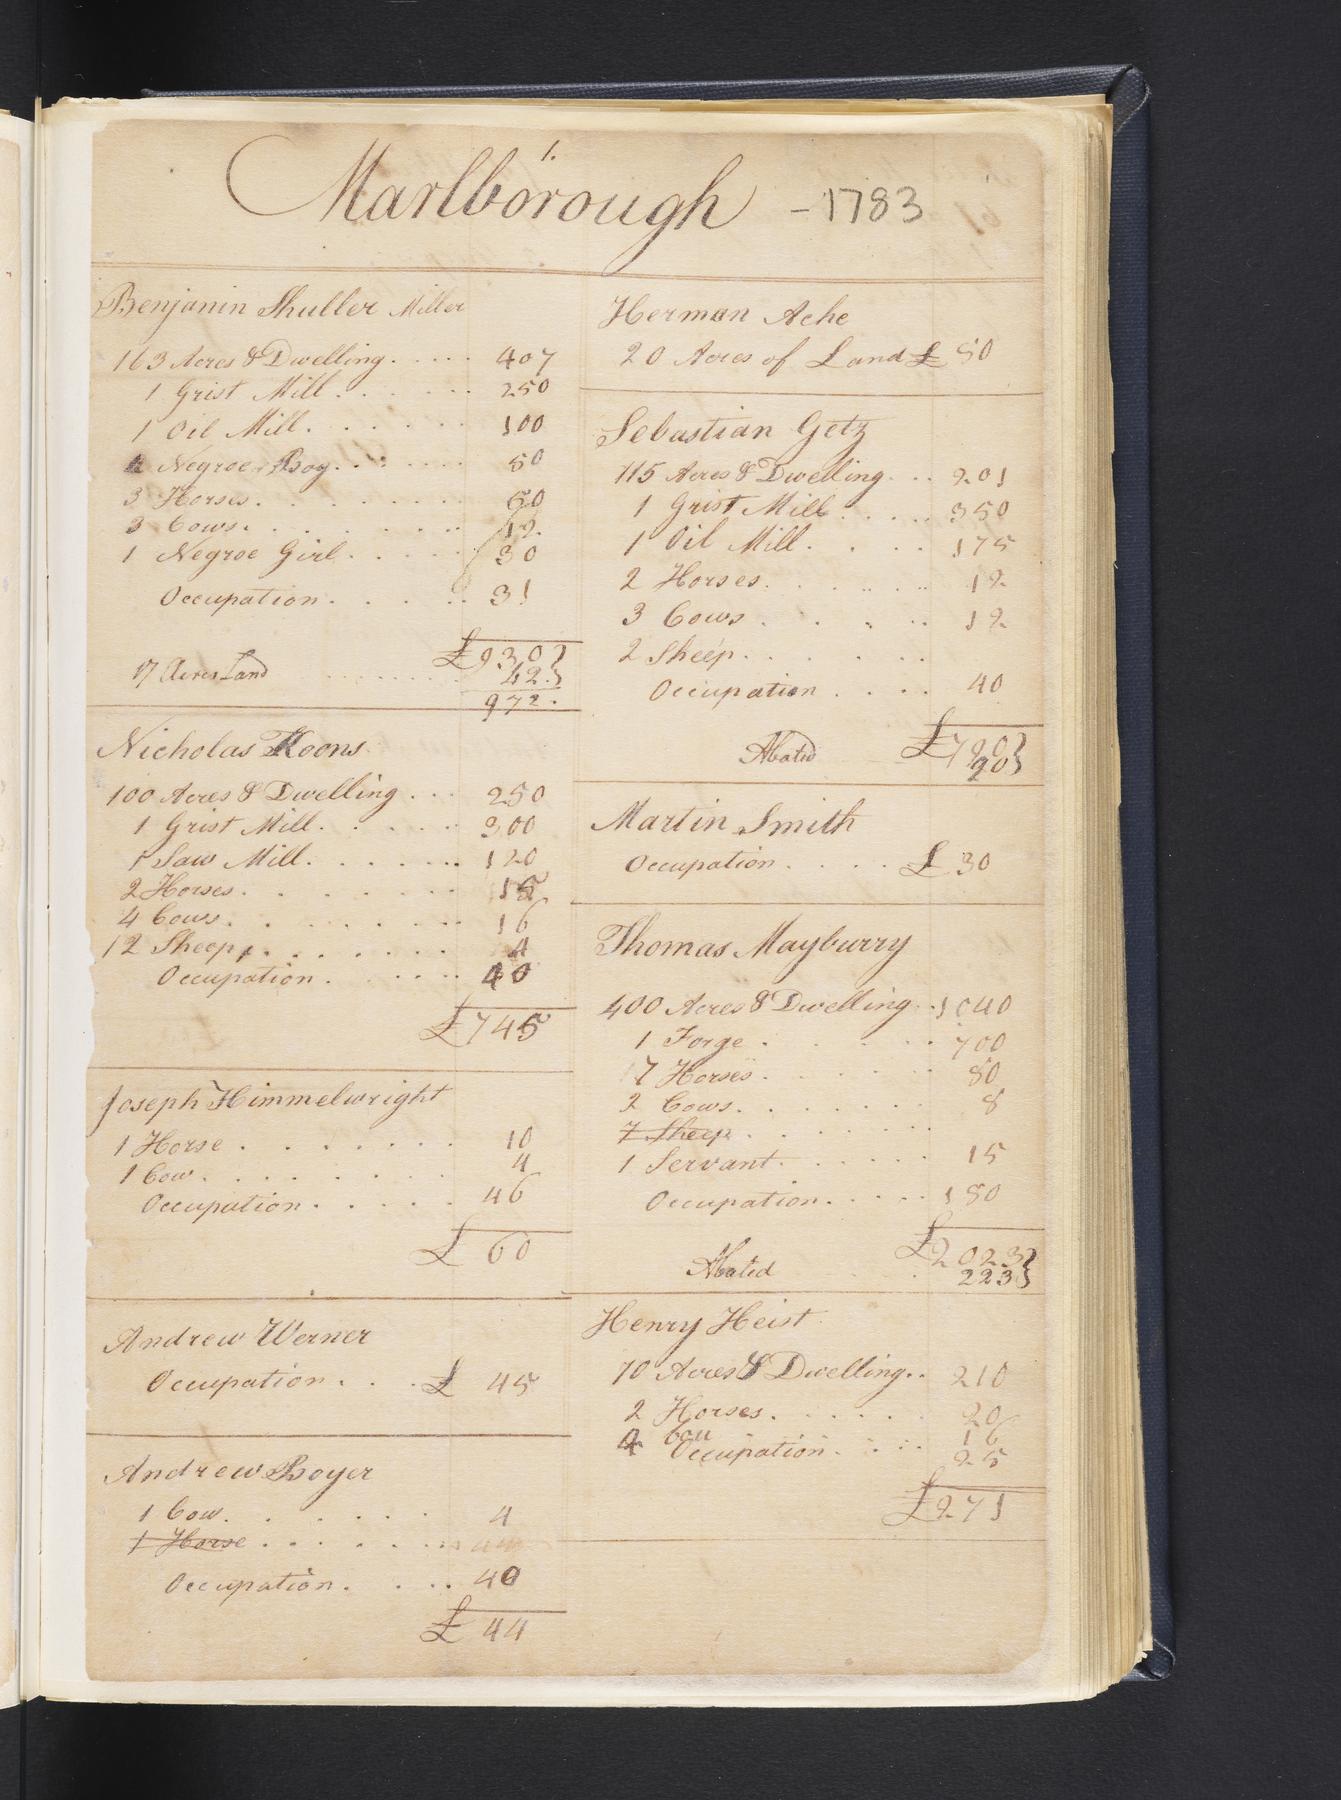 1.
Marlborough - 1783
Benjanin Shuller Miller
163 Acres & Dwelling . . . . . 407
1 Grist Mill . . . . . . 250
1 Oil Mill . . . . . . 100
Negroe Boy . . . . . . 50
3 Horses . . . . . . 50
3 Cows . . . . . . 12
1 Negroe Girl . . . . . 30
Occupation . . . . . 31
£930
17 Acres Land . . . . . . 42
972.
Nicholas Koons
100 Acres & Dwelling . . . 250
1 Grist Mill . . . . . 300
1 Saw Mill . . . . . . 120
2 Horses . . . . . . 15
4 Cows . . . . . . 16
12 Sheep . . . . . . 4
Occupation . . . . . 40
£745
Joseph Himmelwright
1 Horse . . . . . . 10
1 Cow . . . . . . 4
Occupation . . . . . 46
£ 60
Andrew Werner
Occupation . . . £ 45
Andrew Boyer
1 Cow . . . . . . 4
1 Horse . . . . . .
Occupation . . . . 40
£ 44
Herman Ache
20 Acres of Land £ 50
Sebastian Getz
115 Acres & Dwelling . . . 201
1 Grist Mill . . . . . 350
1 Oil Mill . . . . 175
2 Horses . . . . . 12
3 Cows . . . . . 12
2 Sheep . . . . . .
Occupation . . . . 40
£790
Abated 90
Martin Smith
Occupation . . . . £ 30
Thomas Mayburry
400 Acres & Dwelling . . 1040
1 Forge . . . . . 700
7 Horses . . . . . 80
2 Cows . . . . . 8
7 Sheep . . . . . .
1 Servant . . . . . . 15
Occupation . . . . . 180
£2023
Abated . 223
Henry Heist
70 Acres & Dwelling . . 210
2 Horses . . . . . 20
4 Cow 16
Occupation . . . . 25
£271